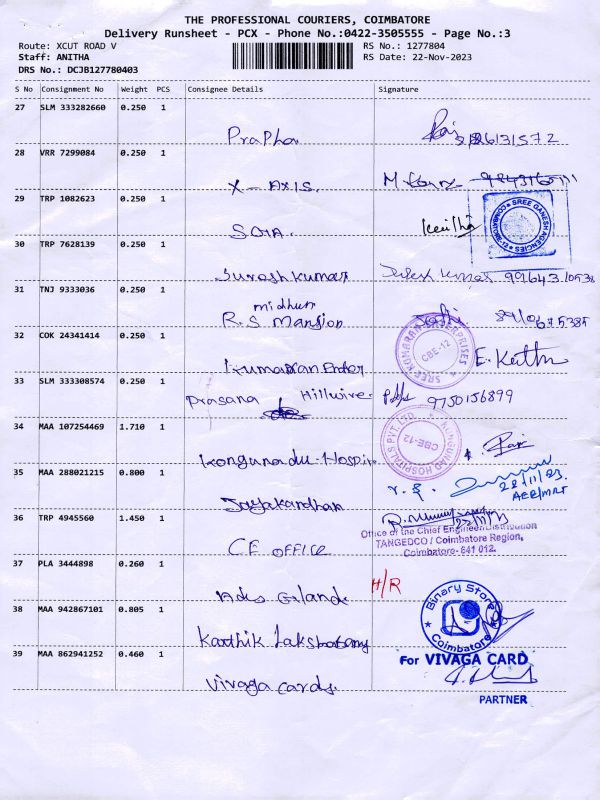 THE PROFESSIONAL COURIERS, COIMBATORE
Delivery Runsheet - PCX - Phone No.:0422-3505555 - Page No.:3
Route: XCUT ROAD V RS No.: 1277804
Staff: ANITHA RS Date: 22-Nov-2023
DRS No.: DCJB127780403
S No Consignment No Weight PCS Consignee Details Signature
27 SLM 333282660 0.250 1
Prapha
28 VRR 7299084 0.250 1
X-AXIS.
29 TRP 1082623 0.250 1
SREE GANESH AGENCIES
30 TRP 7628139 0.250 1
Sureshkumar
31 TNJ 9333036 0.250 1
midhun
R.S. Mansion
32 COK 24341414 0.250 1
SREE KUMARAN ENTERPRISES
CBE-12
33 SLM 333308574 0.250 1
Prasana Hillwire 9750156899
34 MAA 107254469 1.710 1
KONGUNAD HOSPITALS PVT. LTD.
CBE-12
Kongunadu-Hospi
35 MAA 288021215 0.800 1
22/11/23
36 TRP 4945560 1.450 1
Office of the Chief Engineer/Distribution
TANGEDCO / Coimbatore Region,
Coimbatore- 641 012.
CE OFFICE
37 PLA 3444898 0.260 1
H/R
38 MAA 942867101 0.805 1
Binary Store
Coimbatore
Karthik
39 MAA 862941252 0.460 1
For VIVAGA CARD
Vivaga cards.
PARTNER